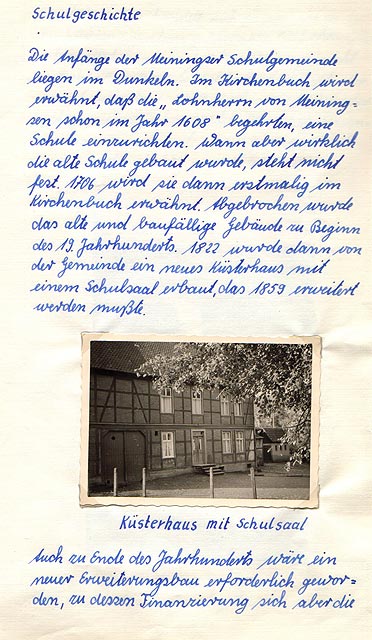 Schulgeschichte
Die Anfänge der Meiningser Schulgemeinde
liegen im Dunkeln. Im Kirchenbuch wird
erwähnt, daß die „Lohnherrn von Meining=
sen schon im Jahr 1608" begehrten, eine
Schule einzurichten. Wann aber wirklich
die alte Schule gebaut wurde, steht nicht
fest. 1706 wird sie dann erstmalig im
Kirchenbuch erwähnt. Abgebrochen wurde
das alte und baufällige Gebäude zu Beginn
des 19. Jahrhunderts. 1822 wurde dann von
der Gemeinde ein neues Küsterhaus mit
einem Schulsaal erbaut, das 1859 erweitert
werden mußte.
Küsterhaus mit Schulsaal
Auch zu Ende des Jahrhunderts wäre ein
neuer Erweiterungsbau erforderlich gewor=
den, zu dessen Finanzierung sich aber die